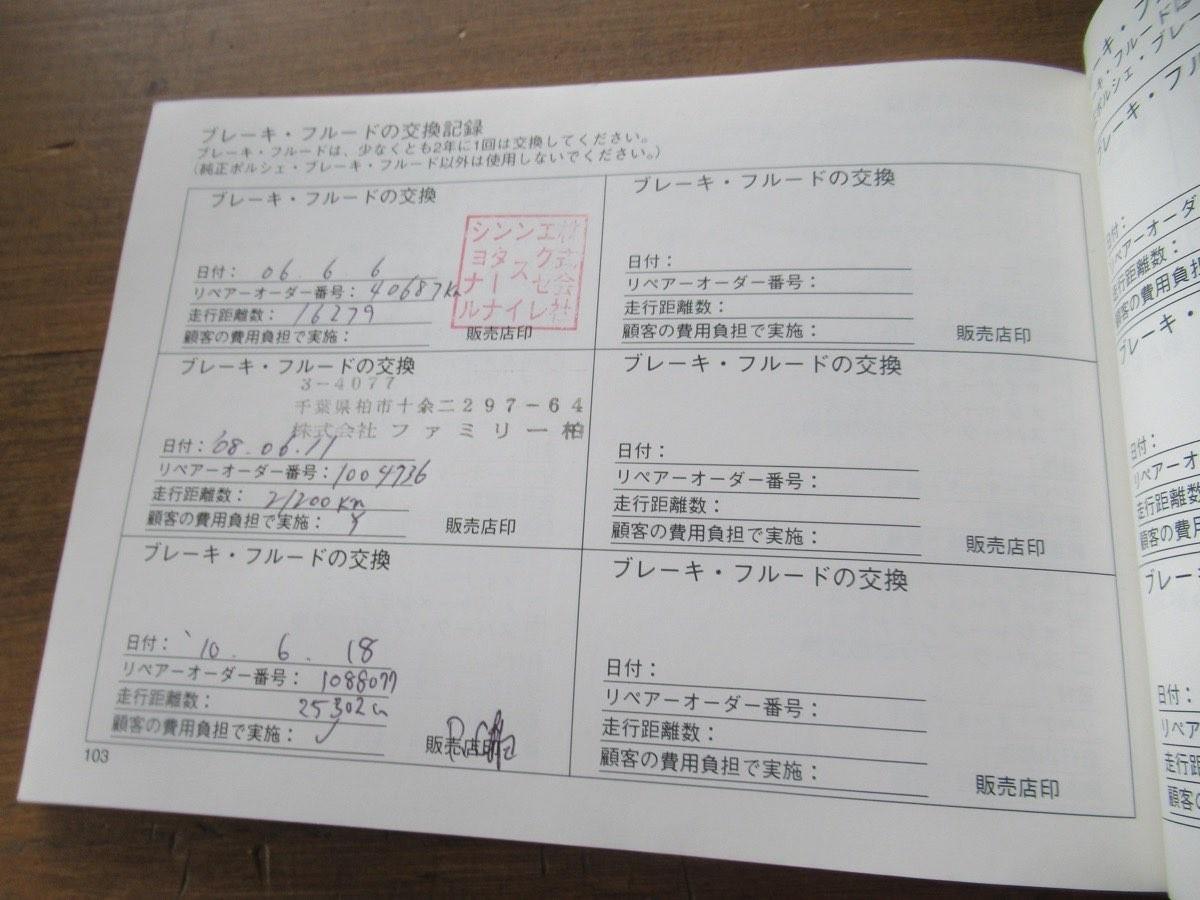 ブレーキ・フルードの交換記録
ブレーキ・フルードは、少なくとも2年に1回は交換してください。
(純正ポルシェ・ブレーキ・フルード以外は使用しないでください。)
ブレーキ・フルードの交換
日付: 06. 6. 6
リペアーオーダー番号: 40687Km
走行距離数: 16279
顧客の費用負担で実施:
販売店印
シンンエ株
ヨタスク式
ナーセ会
ルナイレ社
ブレーキ・フルードの交換
3-4077
千葉県柏市十余二297-64
株式会社 ファミリー柏
日付: '08.06.11
リペアーオーダー番号: 1004736
走行距離数: 21200Km
顧客の費用負担で実施: y
販売店印
ブレーキ・フルードの交換
日付: '10. 6. 18
リペアーオーダー番号: 1088077
走行距離数: 25302
顧客の費用負担で実施:
販売店印
103
ブレーキ・フルードの交換
日付:
リペアーオーダー番号:
走行距離数:
顧客の費用負担で実施:
販売店印
ブレーキ・フルードの交換
日付:
リペアーオーダー番号:
走行距離数:
顧客の費用負担で実施:
販売店印
ブレーキ・フルードの交換
日付:
リペアーオーダー番号:
走行距離数:
顧客の費用負担で実施:
販売店印